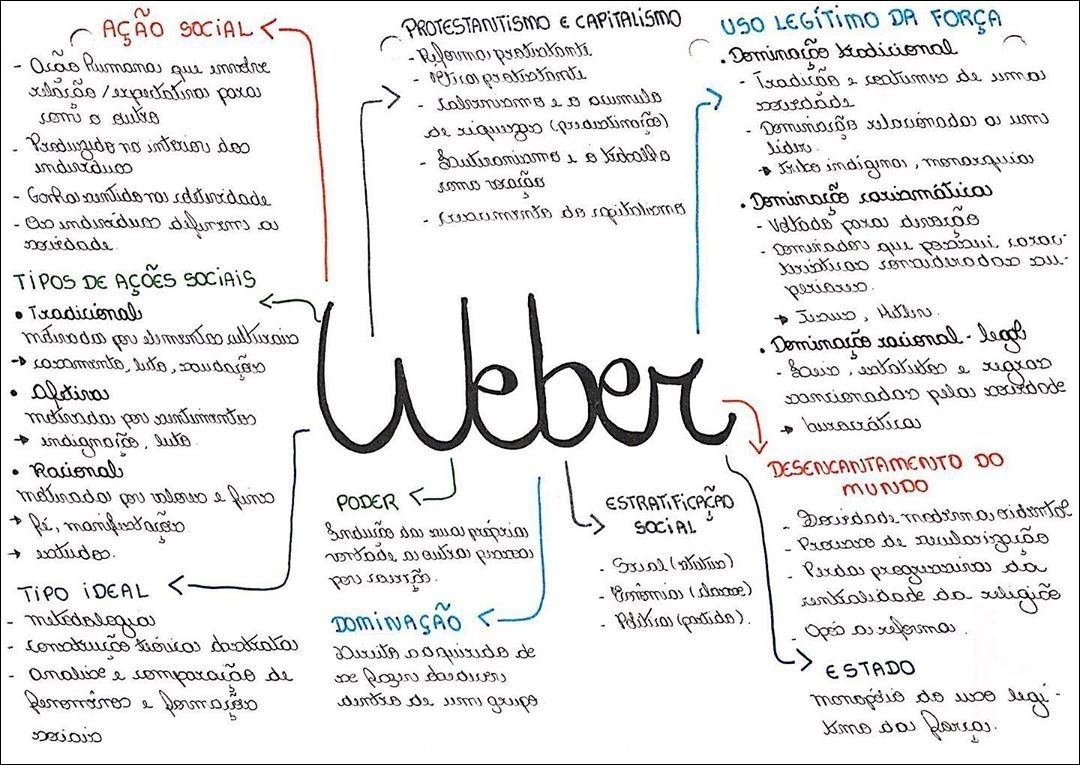 AÇÃO SOCIAL
- Ação humana que envolve
relação / expectativa para
com o outro
- Produzido no interior dos
indivíduos
- Ganha sentido na coletividade
- Os indivíduos definem a
sociedade.
TIPOS DE AÇÕES SOCIAIS
• Tradicional
motivadas por elementos culturais
→ casamento, luto, saudações
• Afetiva
motivadas por sentimentos
→ indignação, luto.
• Racional
motivadas por valores e fins
→ fé, manifestação
→ estudos.
TIPO IDEAL
- metodologia
- construção teórica abstrata
- analise e comparação de
fenomênos e formação
sociais
PROTESTANTISMO E CAPITALISMO
- Reforma protestante
- Ética protestante
- calvinismo e o acumulo
de riquezas (predestinação)
- Luteranismo e o trabalho
como vocação
- crescimento do capitalismo
Weber
PODER
Indução da sua própria
vontade a outra pessoa
por coerção.
DOMINAÇÃO
Direito adquirido de
se fazer obedecer
dentro de um grupo
ESTRATIFICAÇÃO
SOCIAL
- Social (status)
- Econômica (classe)
- Política (partido).
USO LEGÍTIMO DA FORÇA
• Dominação tradicional
- Tradição e costumes de uma
sociedade
- Dominação relacionada a um
líder.
→ tribo indígena, monarquia
• Dominação carismática
- Voltada para devoção
- Dominador que possui carac-
terísticas consideradas su-
periores.
→ Jesus, Hitler.
• Dominação racional - legal
- Leis, estatutos e regras
sancionadas pela sociedade
→ burocrática
DESENCANTAMENTO DO
MUNDO
- Sociedade moderna ocidental
- Processo de secularização
- Perda progressiva da
centralidade da religião
- Após a reforma.
ESTADO
monopólio do uso legí-
timo da força.